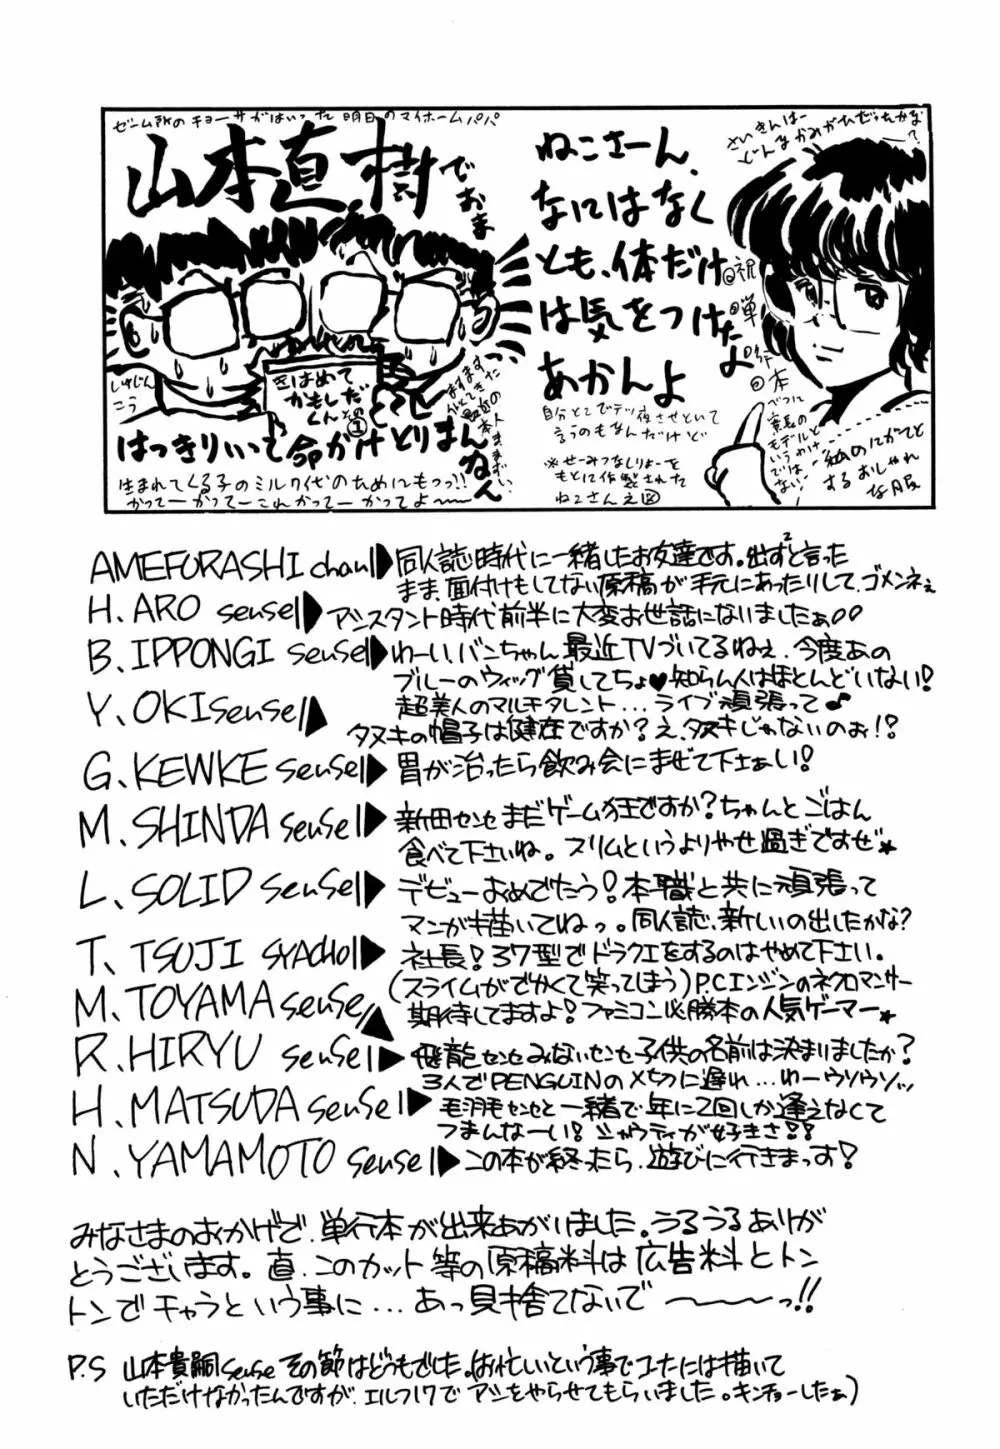 ゼーム所のチョーサがはいった明日のマイホームパパ
山本直樹でおま
ねこさーん、
なにはなく
とも、体だけ
は気をつけたよ
あかんよ
さいきんは
どんなかみがただったかな?
@祝
@単
@行
@本
しゅじん
こう
をはじめて
かもしだ
くんその①
はっきりいって命がけとりまんねん
生まれてくる子のミルク代のためにもっっ!!
かってー かってー これかってー かってよ〜〜
自分とこでテツ夜させといて
言うのもなんだけど
※せーみつなしりょーを
もとに作製された
ねこさんえ図
べつに
モデルと
いうわけ
では
ない!
私のにがてと
するおしゃれ
な服
AMEFURASHI chan▶同人誌時代に一緒したお友達です。出ず²と言った
まま、面付けもしてない原稿が手元にあったりして、ゴメンネぇ
H. ARO sensei▶アシスタント時代前半に大変お世話になりましたぁ
B. IPPONGI sensei▶わーい、バンちゃん最近TVづいてるねぇ、今度あの
ブルーのウィッグ貸してちょ♥知らん人はほとんどいない!
Y. OKI sensei▶超美人のマルチタレント…ライブ頑張って♪
タヌキの帽子は健在ですか?え、タヌキじゃないのぉ!?
G. KEWKE sensei▶胃が治ったら飲み会にまぜて下さぁい!
M. SHINDA sensei▶新田センセまだゲーム狂ですか?ちゃんとごはん
食べて下さいね。スリムというよりやせ過ぎですぜ★
L. SOLID sensei▶デビューおめでたう!本職と共に頑張って
マンガも描いてねっ。同人誌、新しいの出したかな?
T. TSUJI SYACHO▶社長!37型でドラクエをするのはやめて下さい。
(スライムがでかくて笑ってしまう)P.Cエンジンのネクロマンサー
M. TOYAMA sensei▶期待してますよ!ファミコン必勝本の人気ゲーマー★
R. HIRYU sensei▶飛龍センセみないセンセ子供の名前は決まりましたか?
3人でPENGUINの〆切に遅れ…わーウソウソッ
H. MATSUDA sensei▶毛羽毛センセと一緒で年に2回しか逢えなくて
つまんなーい!シャウティが好きさ!!
N. YAMAMOTO sensei▶この本が終ったら、遊びに行きまっす!
みなさまのおかげで、単行本が出来あがいました。うるうるありが
とうございます。直、このカット等の原稿料は広告料とトン
トンでチャラという事に…あっ見捨てないで〜〜〜っ!!
P.S 山本貴嗣senseその節はどうもでした。(お忙しいという事でコナには描いて
いただけなかったんですが、エルフ17でアシをやらせてもらいました。キンチョーしたぁ)